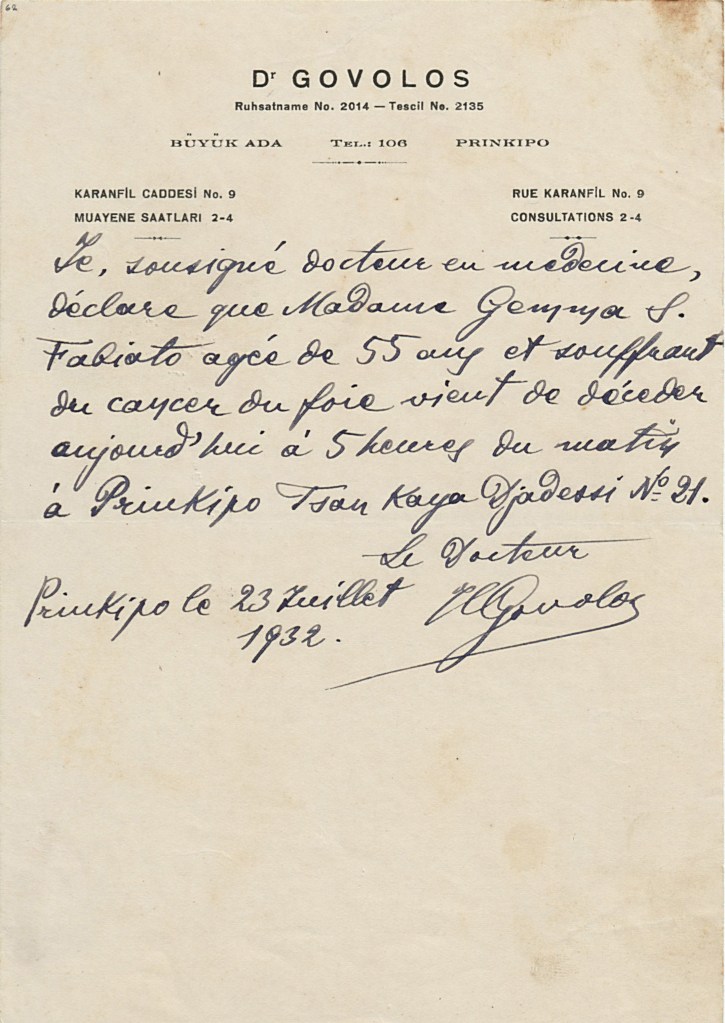 62
Dr GOVOLOS
Ruhsatname No. 2014 — Tescil No. 2135
BÜYÜK ADA TEL.: 106 PRINKIPO
KARANFİL CADDESİ No. 9 RUE KARANFİL No. 9
MUAYENE SAATLARI 2-4 CONSULTATIONS 2-4
Je, sousigné docteur en medecine,
déclare que Madame Gemma S.
Fabiato agée de 55 ans et souffrant
du cancer du foie vient de déceder
aujourd'hui à 5 heures du matin
à Prinkipo Tsan Kaya Djadessi No 21.
Le Docteur
Prinkipo le 23 Juillet Govolos
1932.